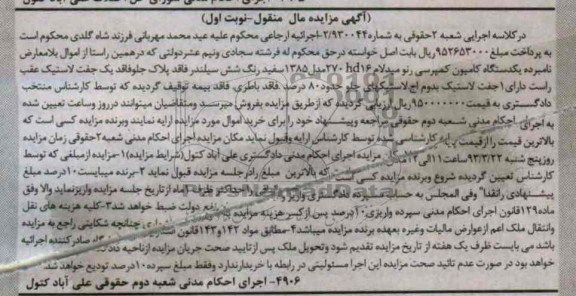 (آگهی مزایده مال منقول-نوبت اول)
درکلاسه اجرایی شعبه ۲حقوقی به شماره۹۳۰۰۴۴/۲-اجرائیه ارجاعی محکوم علیه عید محمد مهربانی فرزند شاه گلدی محکوم است
به پرداخت مبلغ۹۵۲۶۵۳۰۰۰ریال بابت اصل خواسته درحق محکوم له فرشته سجادی ونیم عشردولتی که درهمین راستا از اموال بلامعارض
نامبرده یکدستگاه کامیون کمپرسی رنو میدلام hd۱۶ ۲۷۰مدل ۱۳۸۵سفید رنگ شش سیلندر فاقد پلاک جلوفاقد یک جفت لاستیک عقب
راست دارای۱جفت لاستیک بدوم اج لاستیکهای حدود۸۰ درصد فاقد باطری فاقد بیمه توقیف گردیده که توسط کارشناس منتخب
دادگستری به قیمت۹۵۰۰۰۰۰۰۰ریال ارزیابی گردیده که ازطریق مزایده بفروش میرسد ومتقاضیان میتوانند درروز وساعت تعیین شده
به اجرای احکام مدنی شعبه دوم حقوقی مراجعه وپیشنهاد خود را برای خرید اموال مورد مزایده ارایه نمایند وبرنده مزایده کسی است که
بالاترین قیمت را ازقیمت پایه کارشناسی شده توسط کارشناس ارایه وقبول نماید مکان مزایده اجرای احکام مدنی شعبه۲حقوقی زمان مزایده
روزپنج شنبه ۹۳/۲/۲۲ساعت۱۱الی۱۲مکان مزایده اجرای احکام مدنی دادگستری علی آباد کتول(شرایط مزایده)۱-مزایده ازمبلغی که توسط
کارشناس تعیین گردیده شروع وبرنده مزایده کسی است که بالاترین مبلغ رادر جلسه مزایده قبول نماید ۲-برنده میبایست۱۰درصد مبلغ
پیشنهادی رانقدا" وفی المجلس به حساب سپرده دادگستری واریز والباقی را حداکثر ظرف۱ماه ازتاریخ جلسه مزایده واریزنماید والا وفق
ماده۱۲۹قانون اجرای احکام مدنی سپرده واریزی۱۰درصد پس از کسر هزینه مزایده بنفع دولت ضبط خواهد شد۳-کلیه هزینه های نقل
وانتقال ملک اعم ازعوارض مالیات وغیره بعهده برنده مزایده میباشد۴-مطابق مواد ۱۴۲و۱۴۳قانون چنانچه شکایتی راجع به مزایده
باشد می بایست ظرف یک هفته از تاریخ مزایده تقدیم شود وتحویل ملک پس ازتایید صحت جریان مزایده ازناحیه صادرکننده اجرائیه
خواهد بود در صورت عدم تائید صحت مزایده این اجرا مسئولیتی در رابطه با خریدارندارد وفقط مبلغ سپرده۱۰درصد تودیع خواهد شد.
۴۹۰۶- اجرای احکام مدنی شعبه دوم حقوقی علی آباد کتول